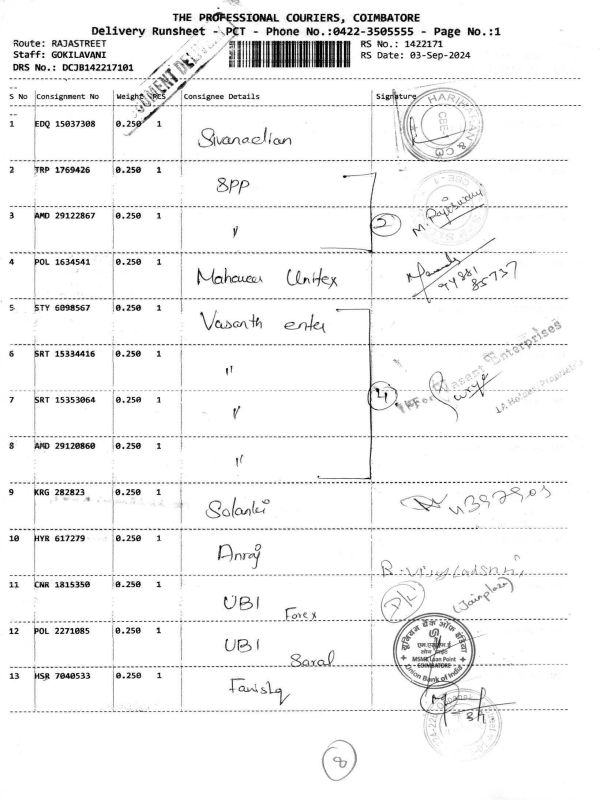 THE PROFESSIONAL COURIERS, COIMBATORE
Delivery Runsheet - PCT - Phone No.:0422-3505555 - Page No.:1
Route: RAJASTREET RS No.: 1422171
Staff: GOKILAVANI RS Date: 03-Sep-2024
DRS No.: DCJB142217101
S No Consignment No Weight PCS Consignee Details Signature
1 EDQ 15037308 0.250 1
2 TRP 1769426 0.250 1 SPP
3 AMD 29122867 0.250 1 "
2
4 POL 1634541 0.250 1 Mahaveer Unitex
94881
85737
5 STY 6098567 0.250 1 Vasanth enter
6 SRT 15334416 0.250 1 "
7 SRT 15353064 0.250 1 "
4
For Vasant Enterprises
8 AMD 29120860 0.250 1 "
9 KRG 282823 0.250 1 Solanki
10 HYR 617279 0.250 1 Anraj
11 CNR 1815350 0.250 1 UBI Forex
D/L
(Jainplaza)
12 POL 2271085 0.250 1 UBI Saral
यूनियन बैंक ऑफ इंडिया
MSME Loan Point
COIMBATORE
Union Bank of India
13 HSR 7040533 0.250 1 Tanishq
8